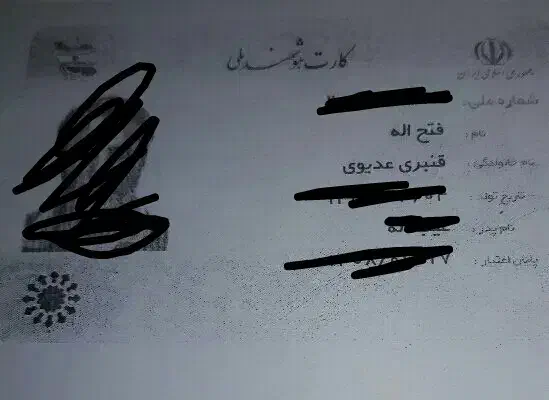 کارت هوشمند ملی
جمهوری اسلامی ایران
شماره ملی:
نام: فتح اله
نام خانوادگی: قنبری عدیوی
تاریخ تولد:
نام پدر:
پایان اعتبار: